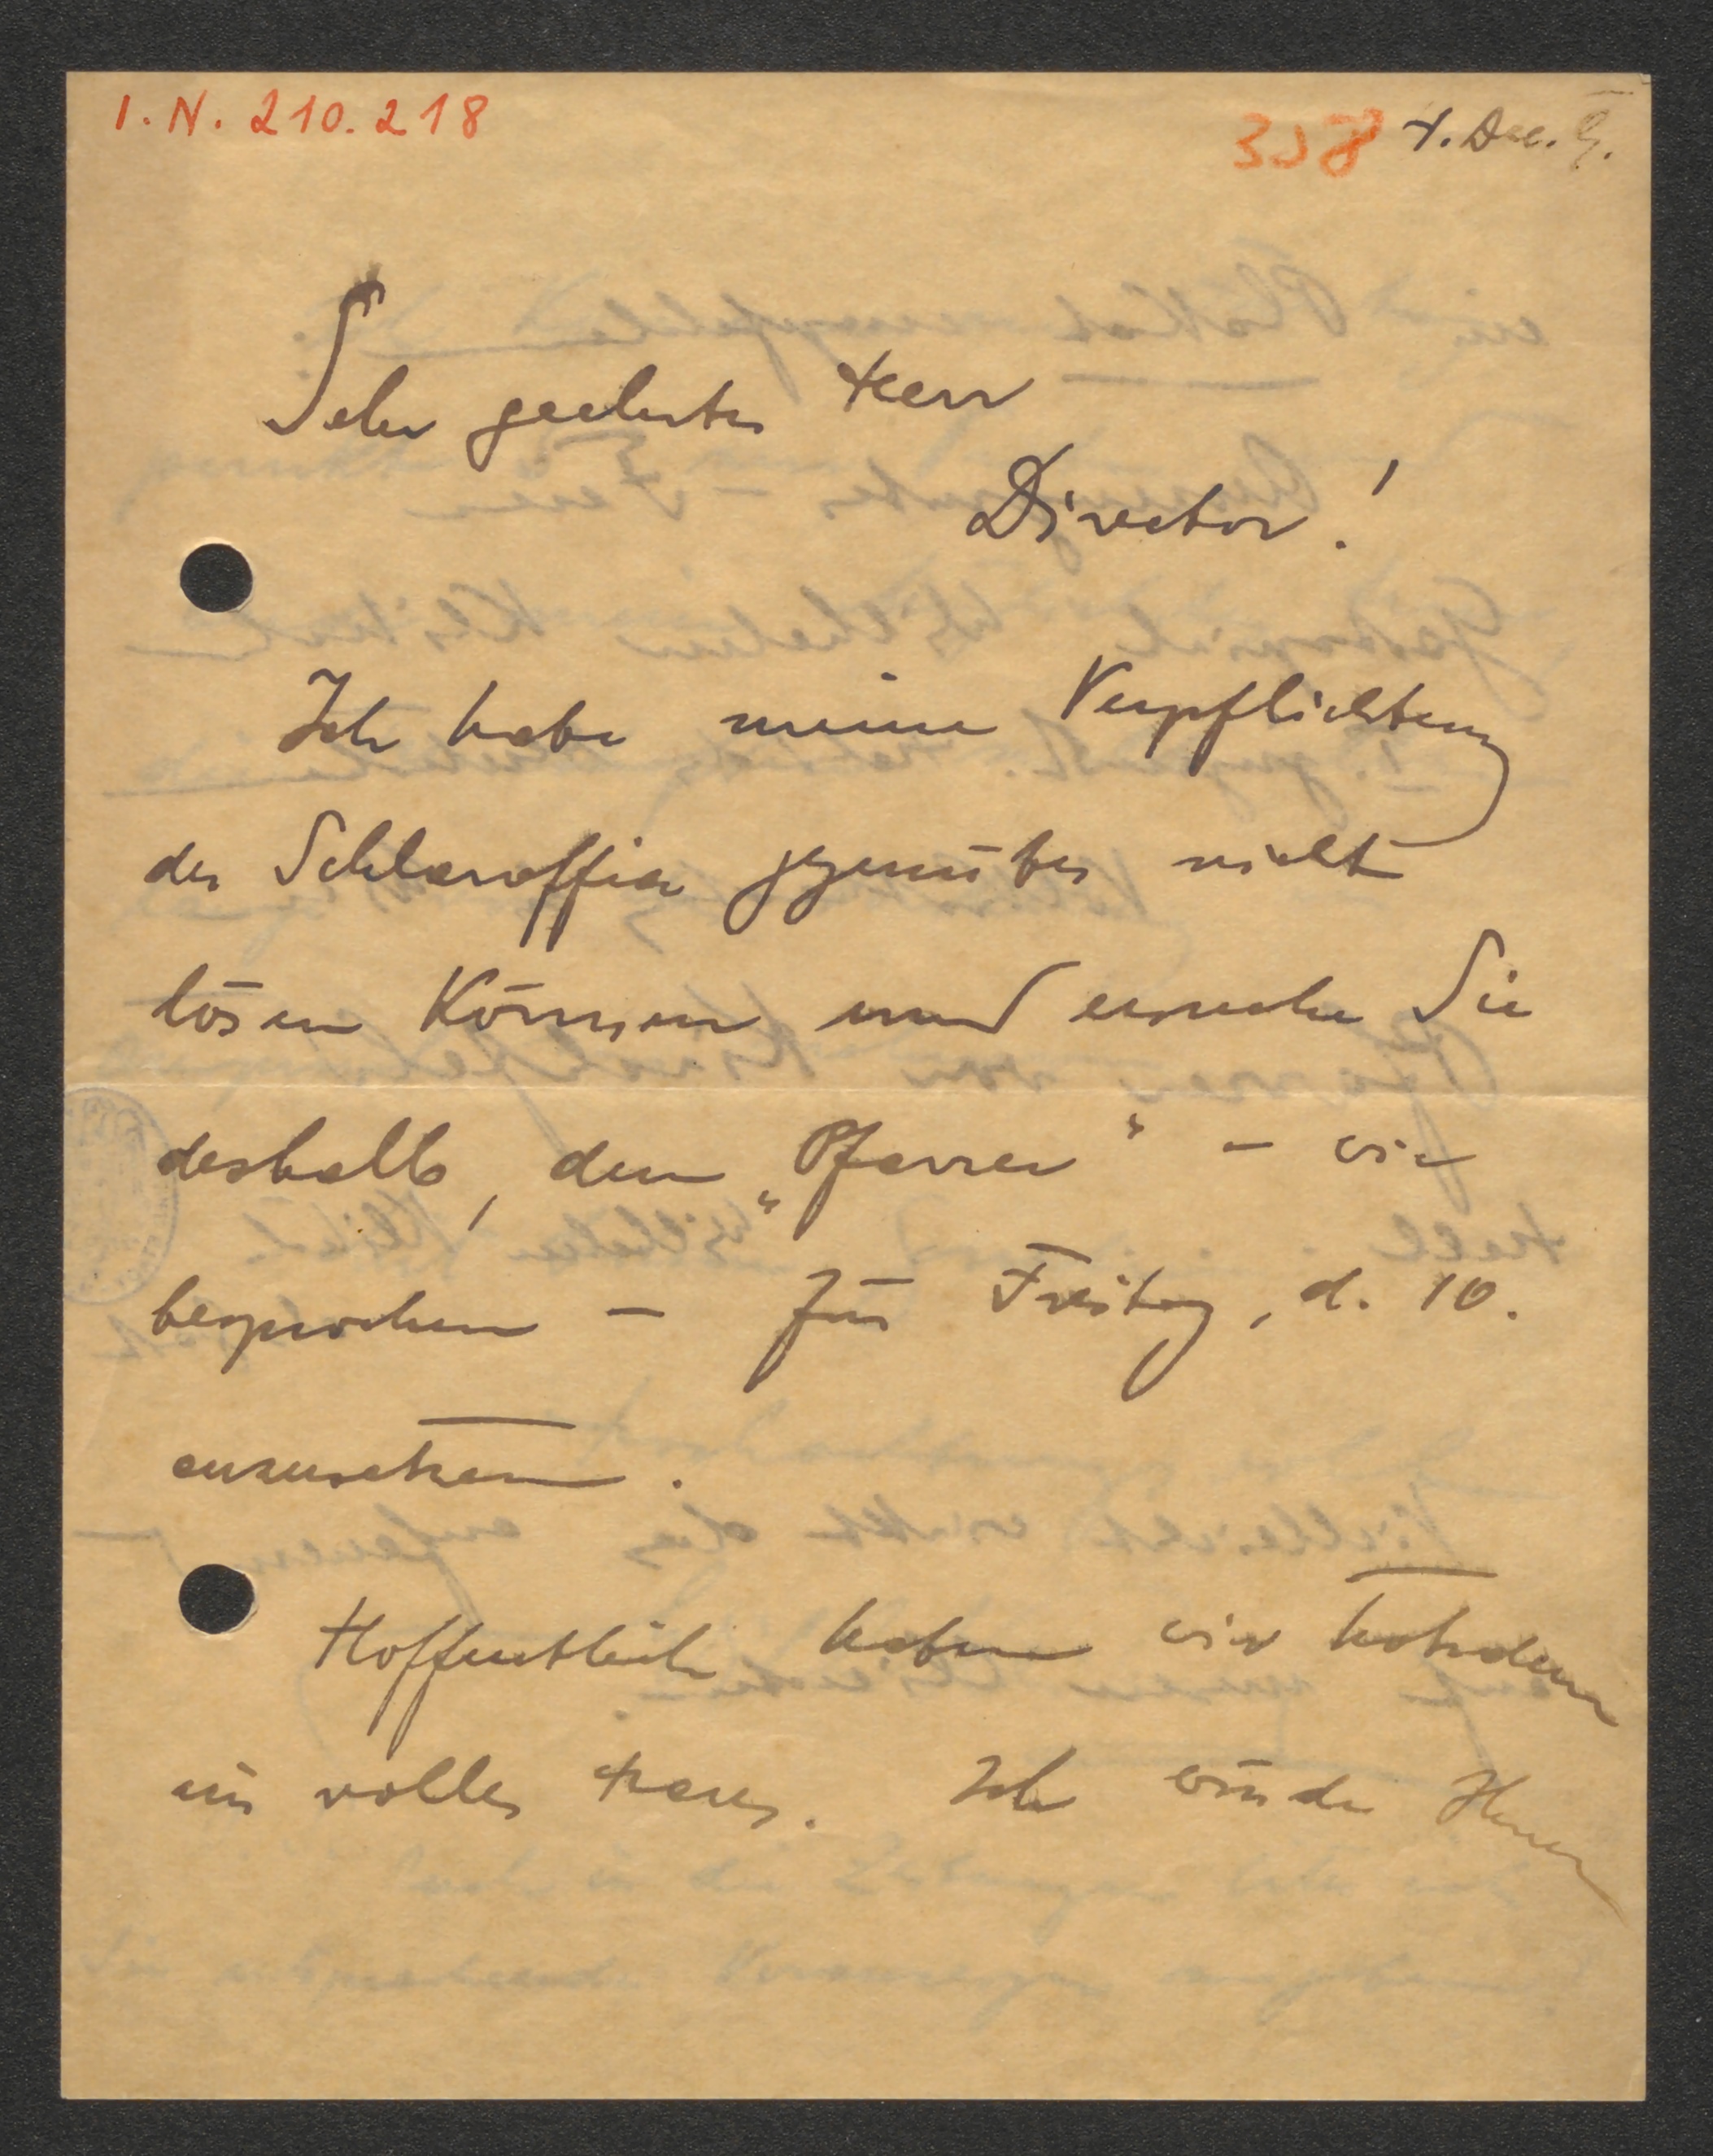 I. N. 210.218
358 4. Dec. 9.
Sehr geehrter Herr
Director!
Ich habe meine Verpflichtung
der Schlaraffia gegenüber nicht
lösen können und ersuche Sie
deshalb, den „Pfarrer“ – wie
besprochen – für Freitag, d. 10.
anzusetzen.
Hoffentlich haben wir trotzdem
ein volles Haus. Ich würde Ihnen